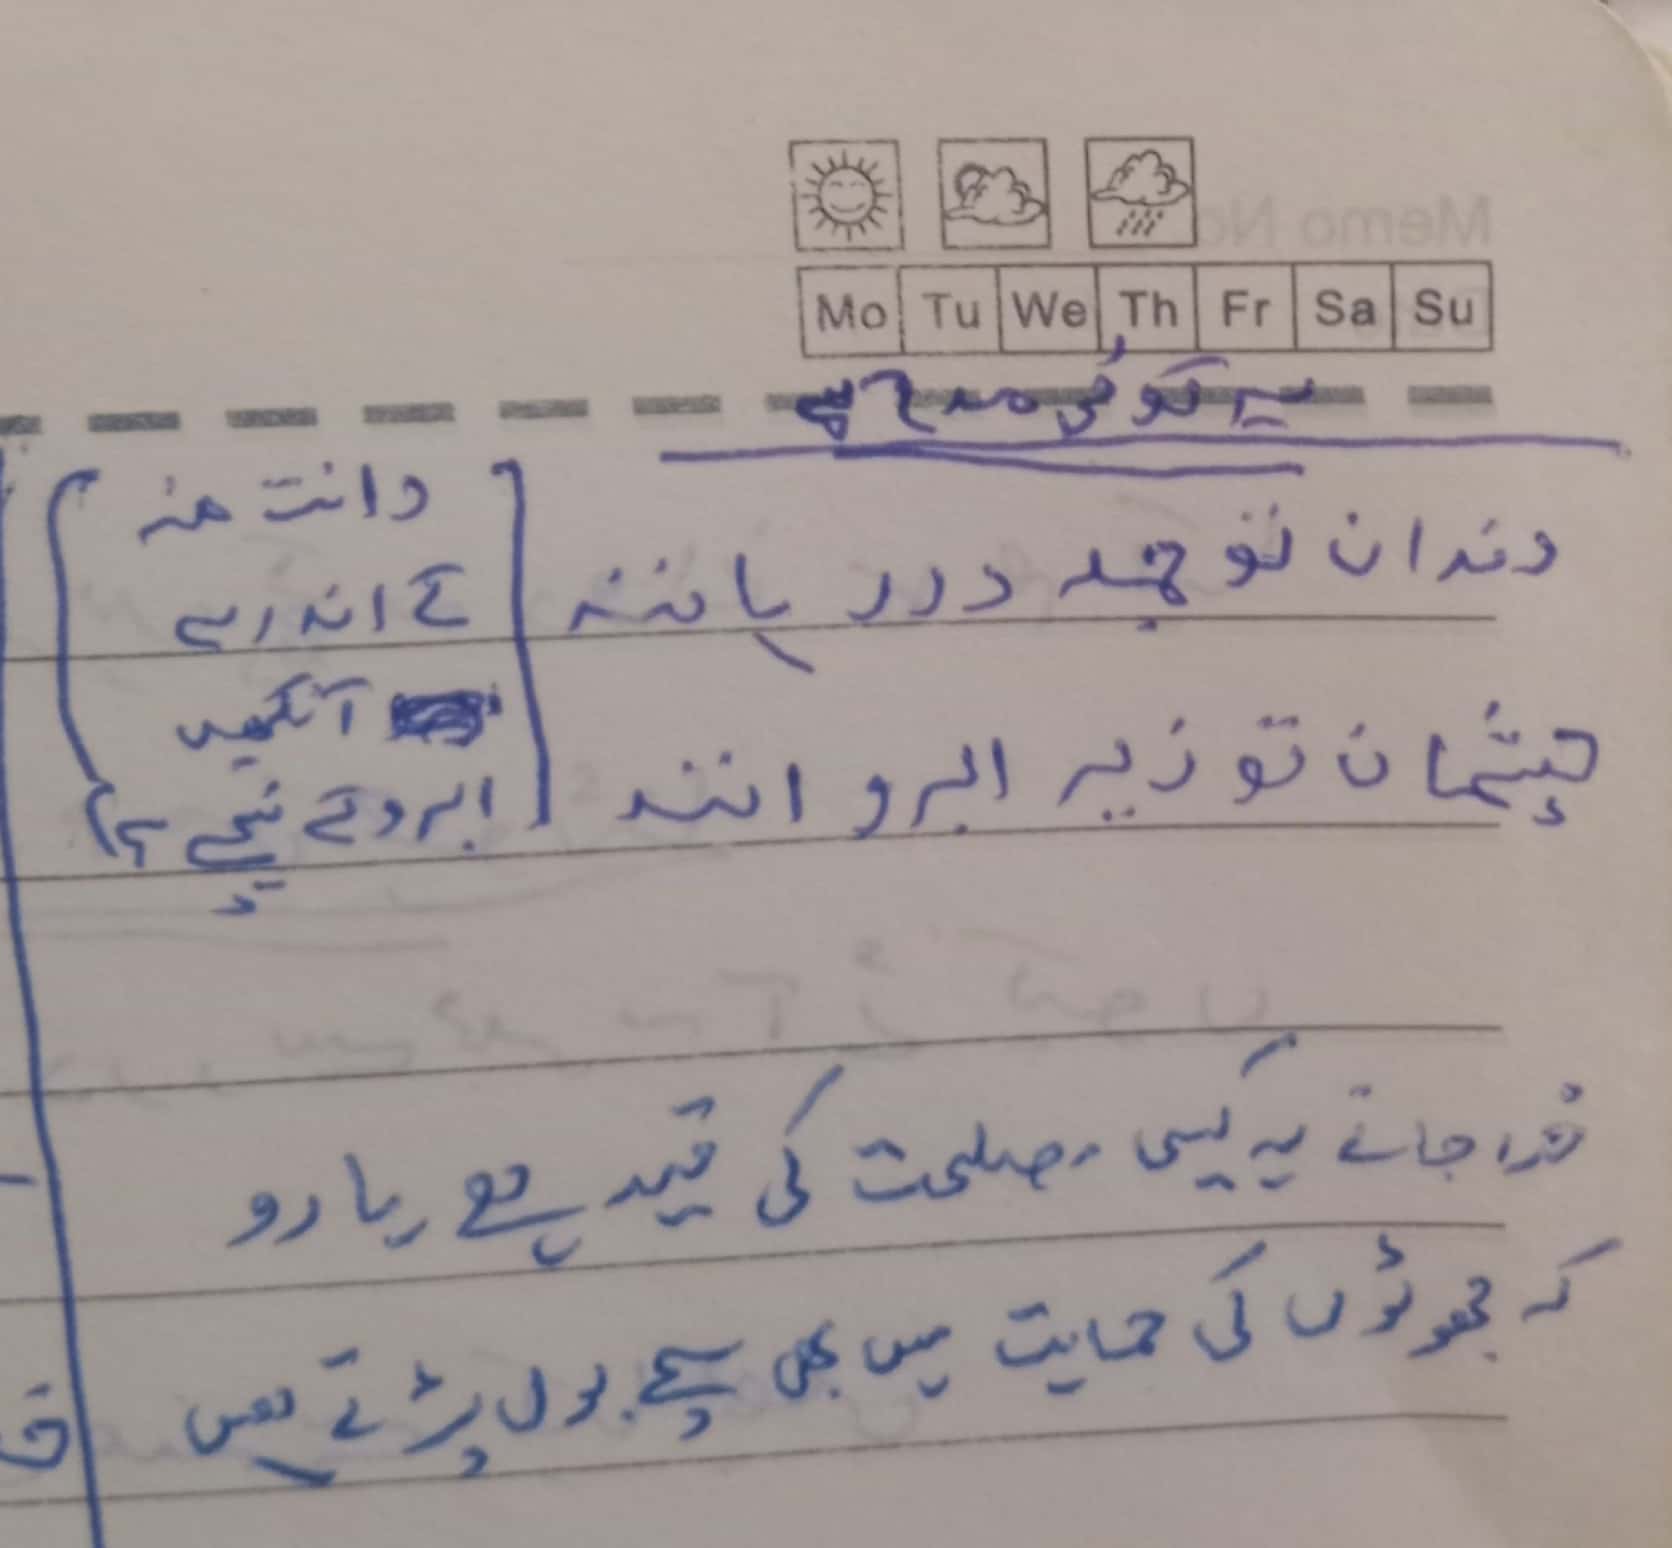 Memo No
Mo Tu We Th Fr Sa Su
یہ کوئی مدح ہے
دندان تو جملہ در دہانند
چشمان تو زیر ابرو انند
دانت منہ
کے اندر ہے
آنکھیں
ابرو کے نیچے ہے
خدا جانے یہ کیسی مصلحت کی قید ہے یارو
کہ جھوٹوں کی حمایت میں بھی سچے بول پڑتے ہیں